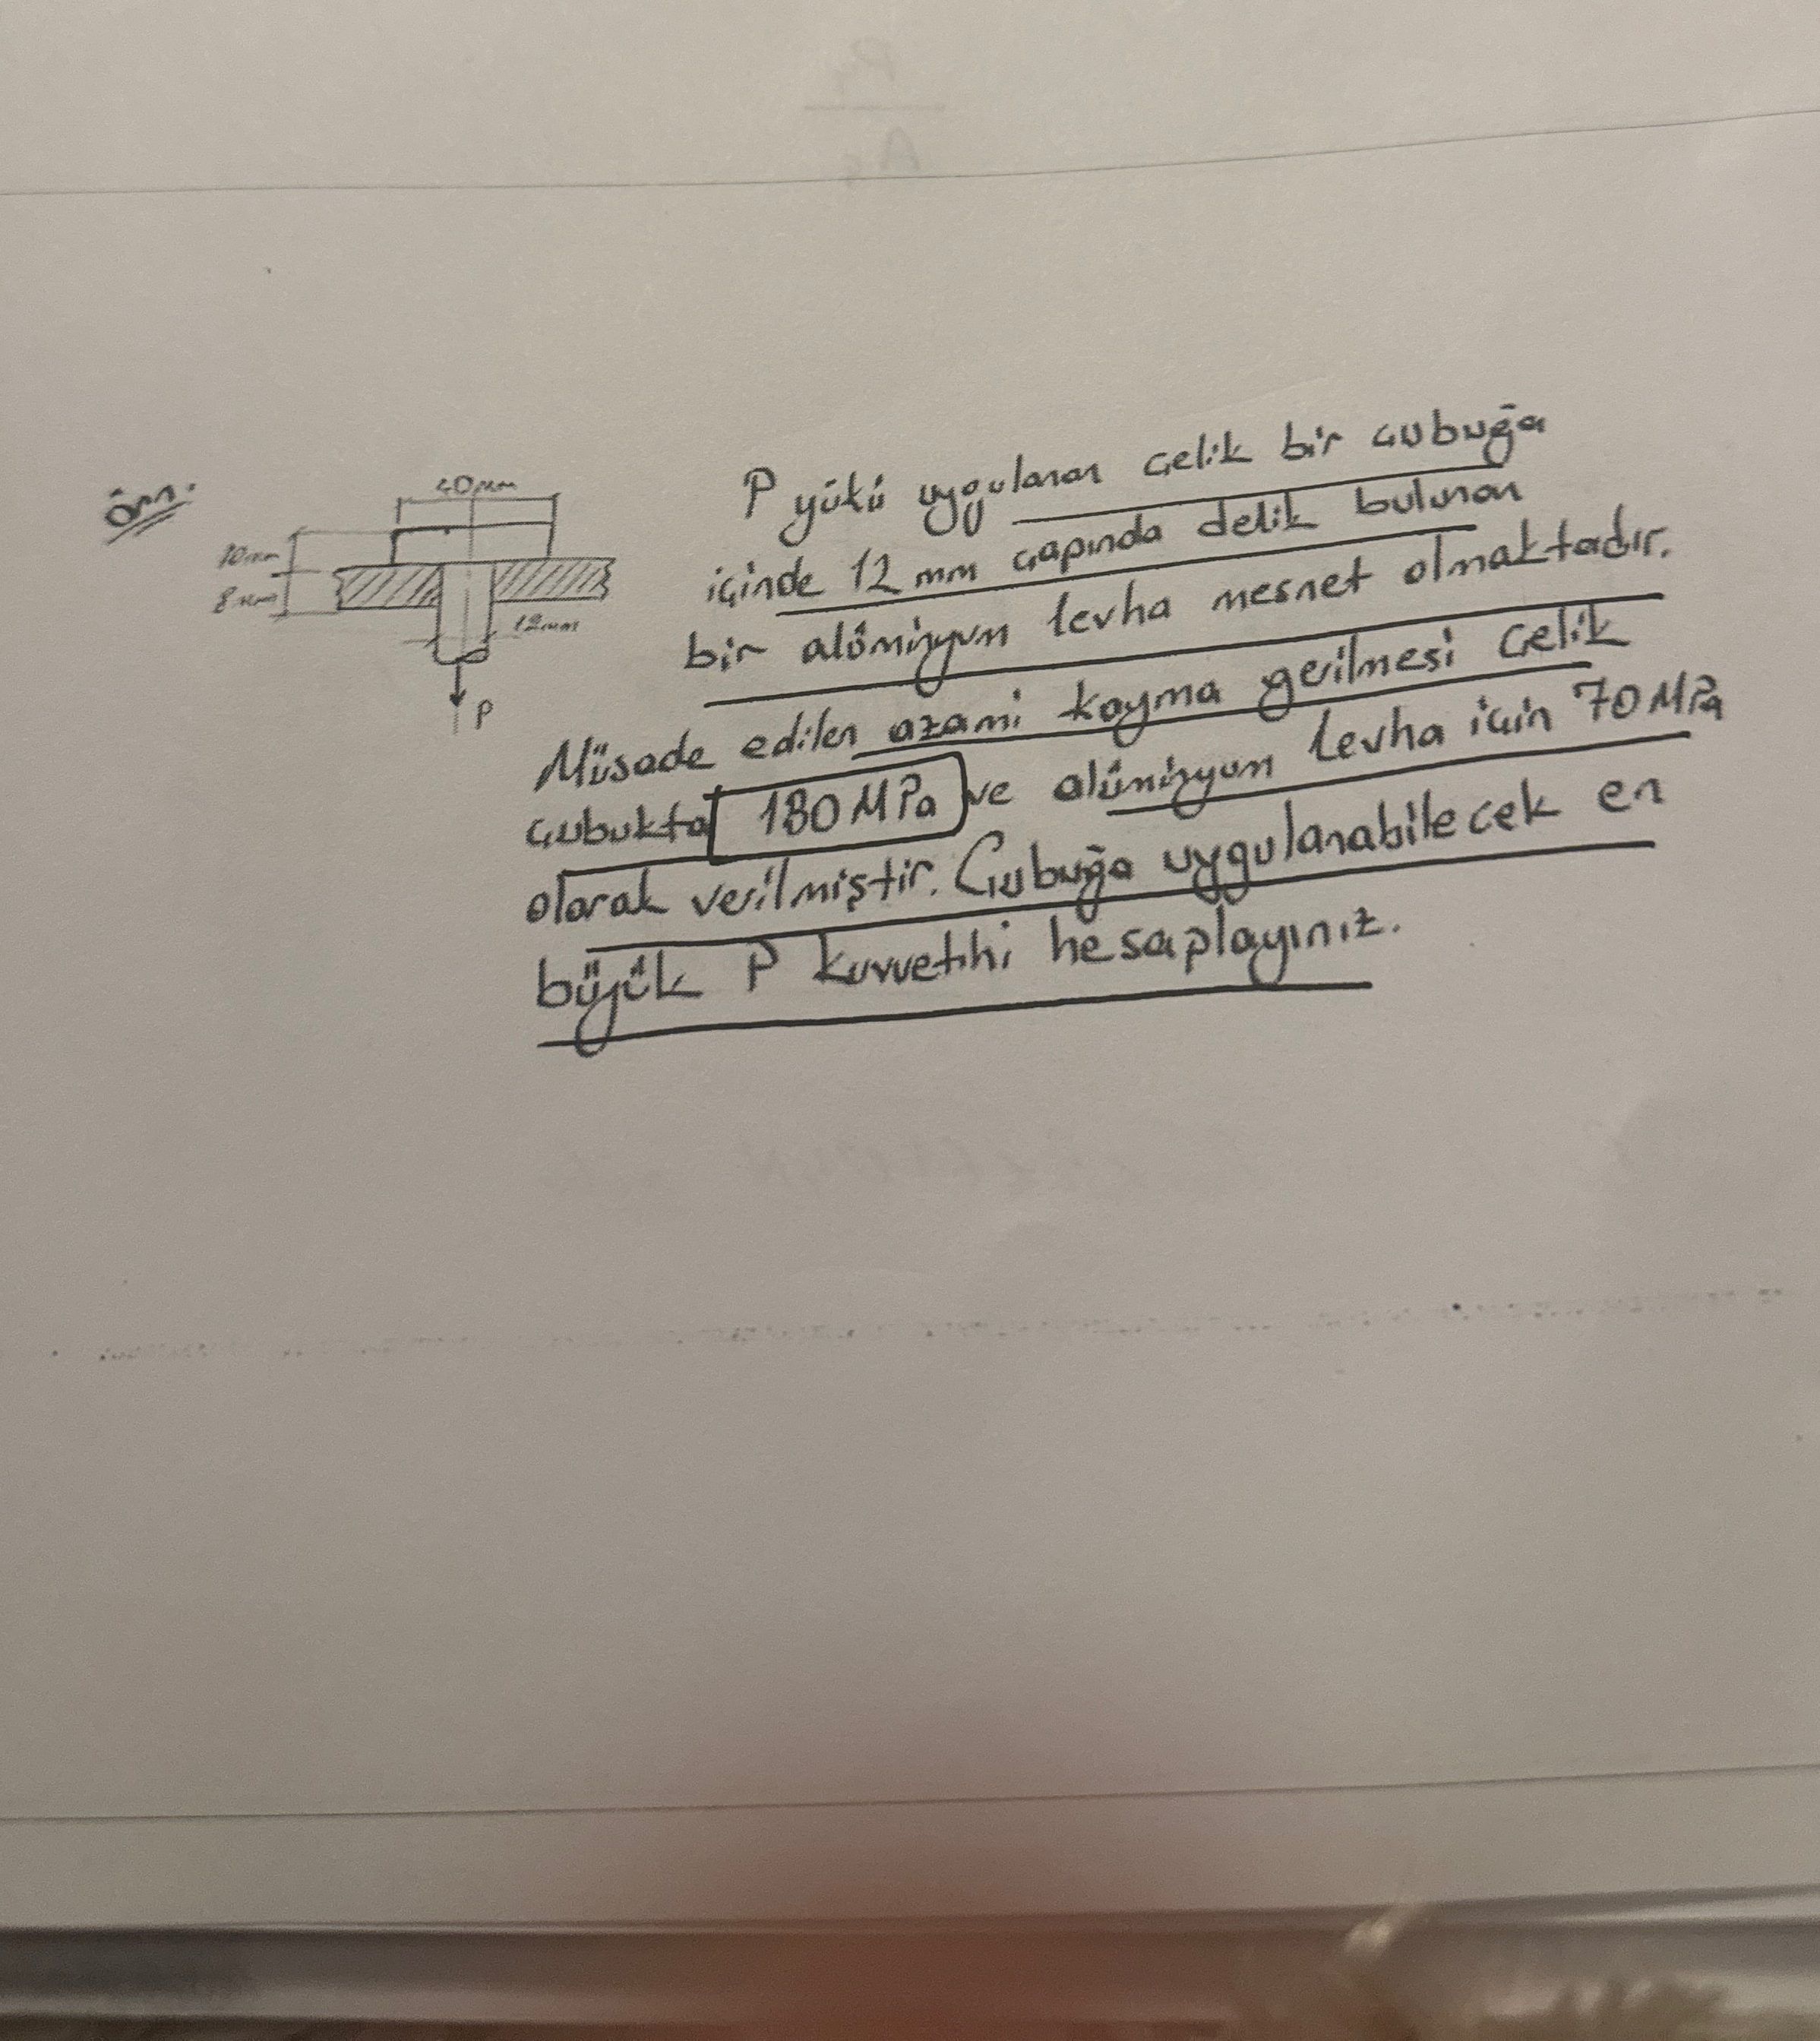 Örn:
40mm
10mm
8mm
12mm
P
P yükü uygulanan çelik bir çubuğa
içinde 12 mm çapında delik bulunan
bir alüminyum levha mesnet olmaktadır.
Müsade edilen azami kayma gerilmesi çelik
çubukta 180 MPa ve alüminyum levha için 70 MPa
olarak verilmiştir. Çubuğa uygulanabilecek en
büyük P kuvvetini hesaplayınız.